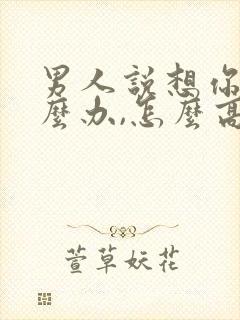 男人說想你
麼办,怎麼高
萱草妖花